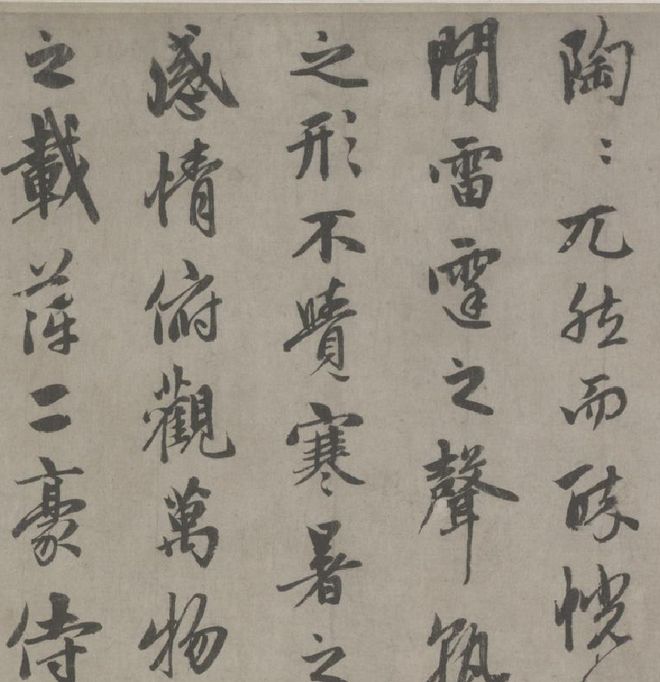 陶〻兀然而醉恍
聞雷霆之聲孰
之形不覺寒暑之
感情俯觀萬物
之載萍二豪侍